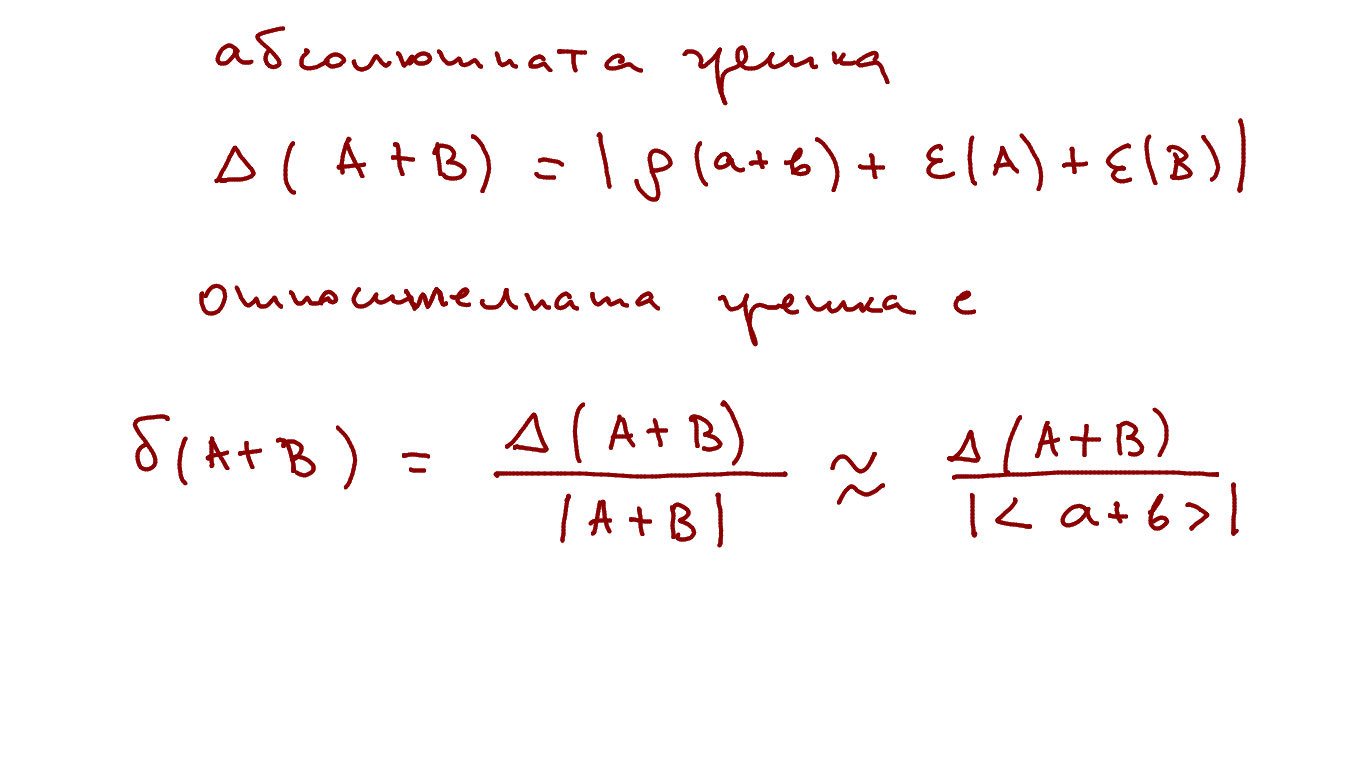 абсолютната грешка
Δ(A+B) = |ρ(a+b) + ε(A) + ε(B)|
относителната грешка е
δ(A+B) = Δ(A+B) / |A+B| ≈ Δ(A+B) / |<a+b>|